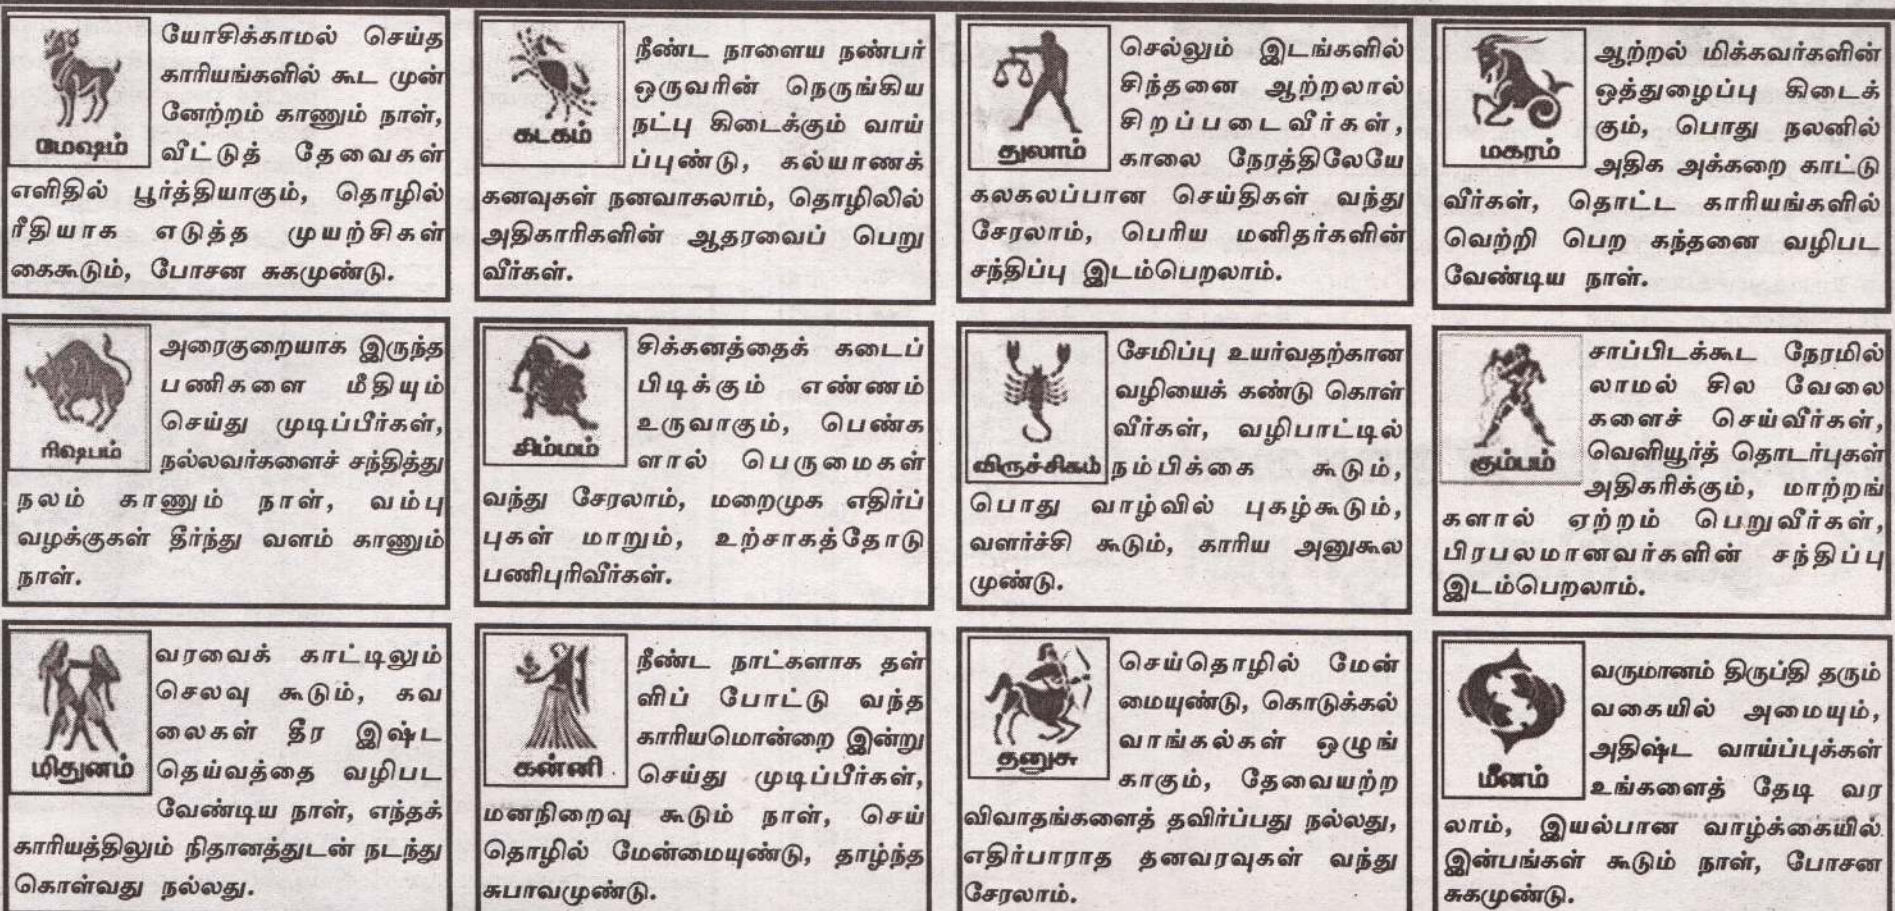 மேஷம்
யோசிக்காமல் செய்த
காரியங்களில் கூட முன்
னேற்றம் காணும் நாள்,
வீட்டுத் தேவைகள்
எளிதில் பூர்த்தியாகும், தொழில்
ரீதியாக எடுத்த முயற்சிகள்
கைகூடும், போசன சுகமுண்டு.
ரிஷபம்
அரைகுறையாக இருந்த
பணிகளை மீதியும்
செய்து முடிப்பீர்கள்,
நல்லவர்களைச் சந்தித்து
நலம் காணும் நாள், வம்பு
வழக்குகள் தீர்ந்து வளம் காணும்
நாள்.
மிதுனம்
வரவைக் காட்டிலும்
செலவு கூடும், கவ
லைகள் தீர இஷ்ட
தெய்வத்தை வழிபட
வேண்டிய நாள், எந்தக்
காரியத்திலும் நிதானத்துடன் நடந்து
கொள்வது நல்லது.
கடகம்
நீண்ட நாளைய நண்பர்
ஒருவரின் நெருங்கிய
நட்பு கிடைக்கும் வாய்
ப்புண்டு, கல்யாணக்
கனவுகள் நனவாகலாம், தொழிலில்
அதிகாரிகளின் ஆதரவைப் பெறு
வீர்கள்.
சிம்மம்
சிக்கனத்தைக் கடைப்
பிடிக்கும் எண்ணம்
உருவாகும், பெண்க
ளால் பெருமைகள்
வந்து சேரலாம், மறைமுக எதிர்ப்
புகள் மாறும், உற்சாகத்தோடு
பணிபுரிவீர்கள்.
கன்னி
நீண்ட நாட்களாக தள்
ளிப் போட்டு வந்த
காரியமொன்றை இன்று
செய்து முடிப்பீர்கள்,
மனநிறைவு கூடும் நாள், செய்
தொழில் மேன்மையுண்டு, தாழ்ந்த
சுபாவமுண்டு.
துலாம்
செல்லும் இடங்களில்
சிந்தனை ஆற்றலால்
சிறப்படைவீர்கள்,
காலை நேரத்திலேயே
கலகலப்பான செய்திகள் வந்து
சேரலாம், பெரிய மனிதர்களின்
சந்திப்பு இடம்பெறலாம்.
விருச்சிகம்
சேமிப்பு உயர்வதற்கான
வழியைக் கண்டு கொள்
வீர்கள், வழிபாட்டில்
நம்பிக்கை கூடும்,
பொது வாழ்வில் புகழ்கூடும்,
வளர்ச்சி கூடும், காரிய அனுகூல
முண்டு.
தனுசு
செய்தொழில் மேன்
மையுண்டு, கொடுக்கல்
வாங்கல்கள் ஒழுங்
காகும், தேவையற்ற
விவாதங்களைத் தவிர்ப்பது நல்லது,
எதிர்பாராத தனவரவுகள் வந்து
சேரலாம்.
மகரம்
ஆற்றல் மிக்கவர்களின்
ஒத்துழைப்பு கிடைக்
கும், பொது நலனில்
அதிக அக்கறை காட்டு
வீர்கள், தொட்ட காரியங்களில்
வெற்றி பெற கந்தனை வழிபட
வேண்டிய நாள்.
கும்பம்
சாப்பிடக்கூட நேரமில்
லாமல் சில வேலை
களைச் செய்வீர்கள்,
வெளியூர்த் தொடர்புகள்
அதிகரிக்கும், மாற்றங்
களால் ஏற்றம் பெறுவீர்கள்,
பிரபலமானவர்களின் சந்திப்பு
இடம்பெறலாம்.
மீனம்
வருமானம் திருப்தி தரும்
வகையில் அமையும்,
அதிஷ்ட வாய்ப்புக்கள்
உங்களைத் தேடி வர
லாம், இயல்பான வாழ்க்கையில்
இன்பங்கள் கூடும் நாள், போசன
சுகமுண்டு.